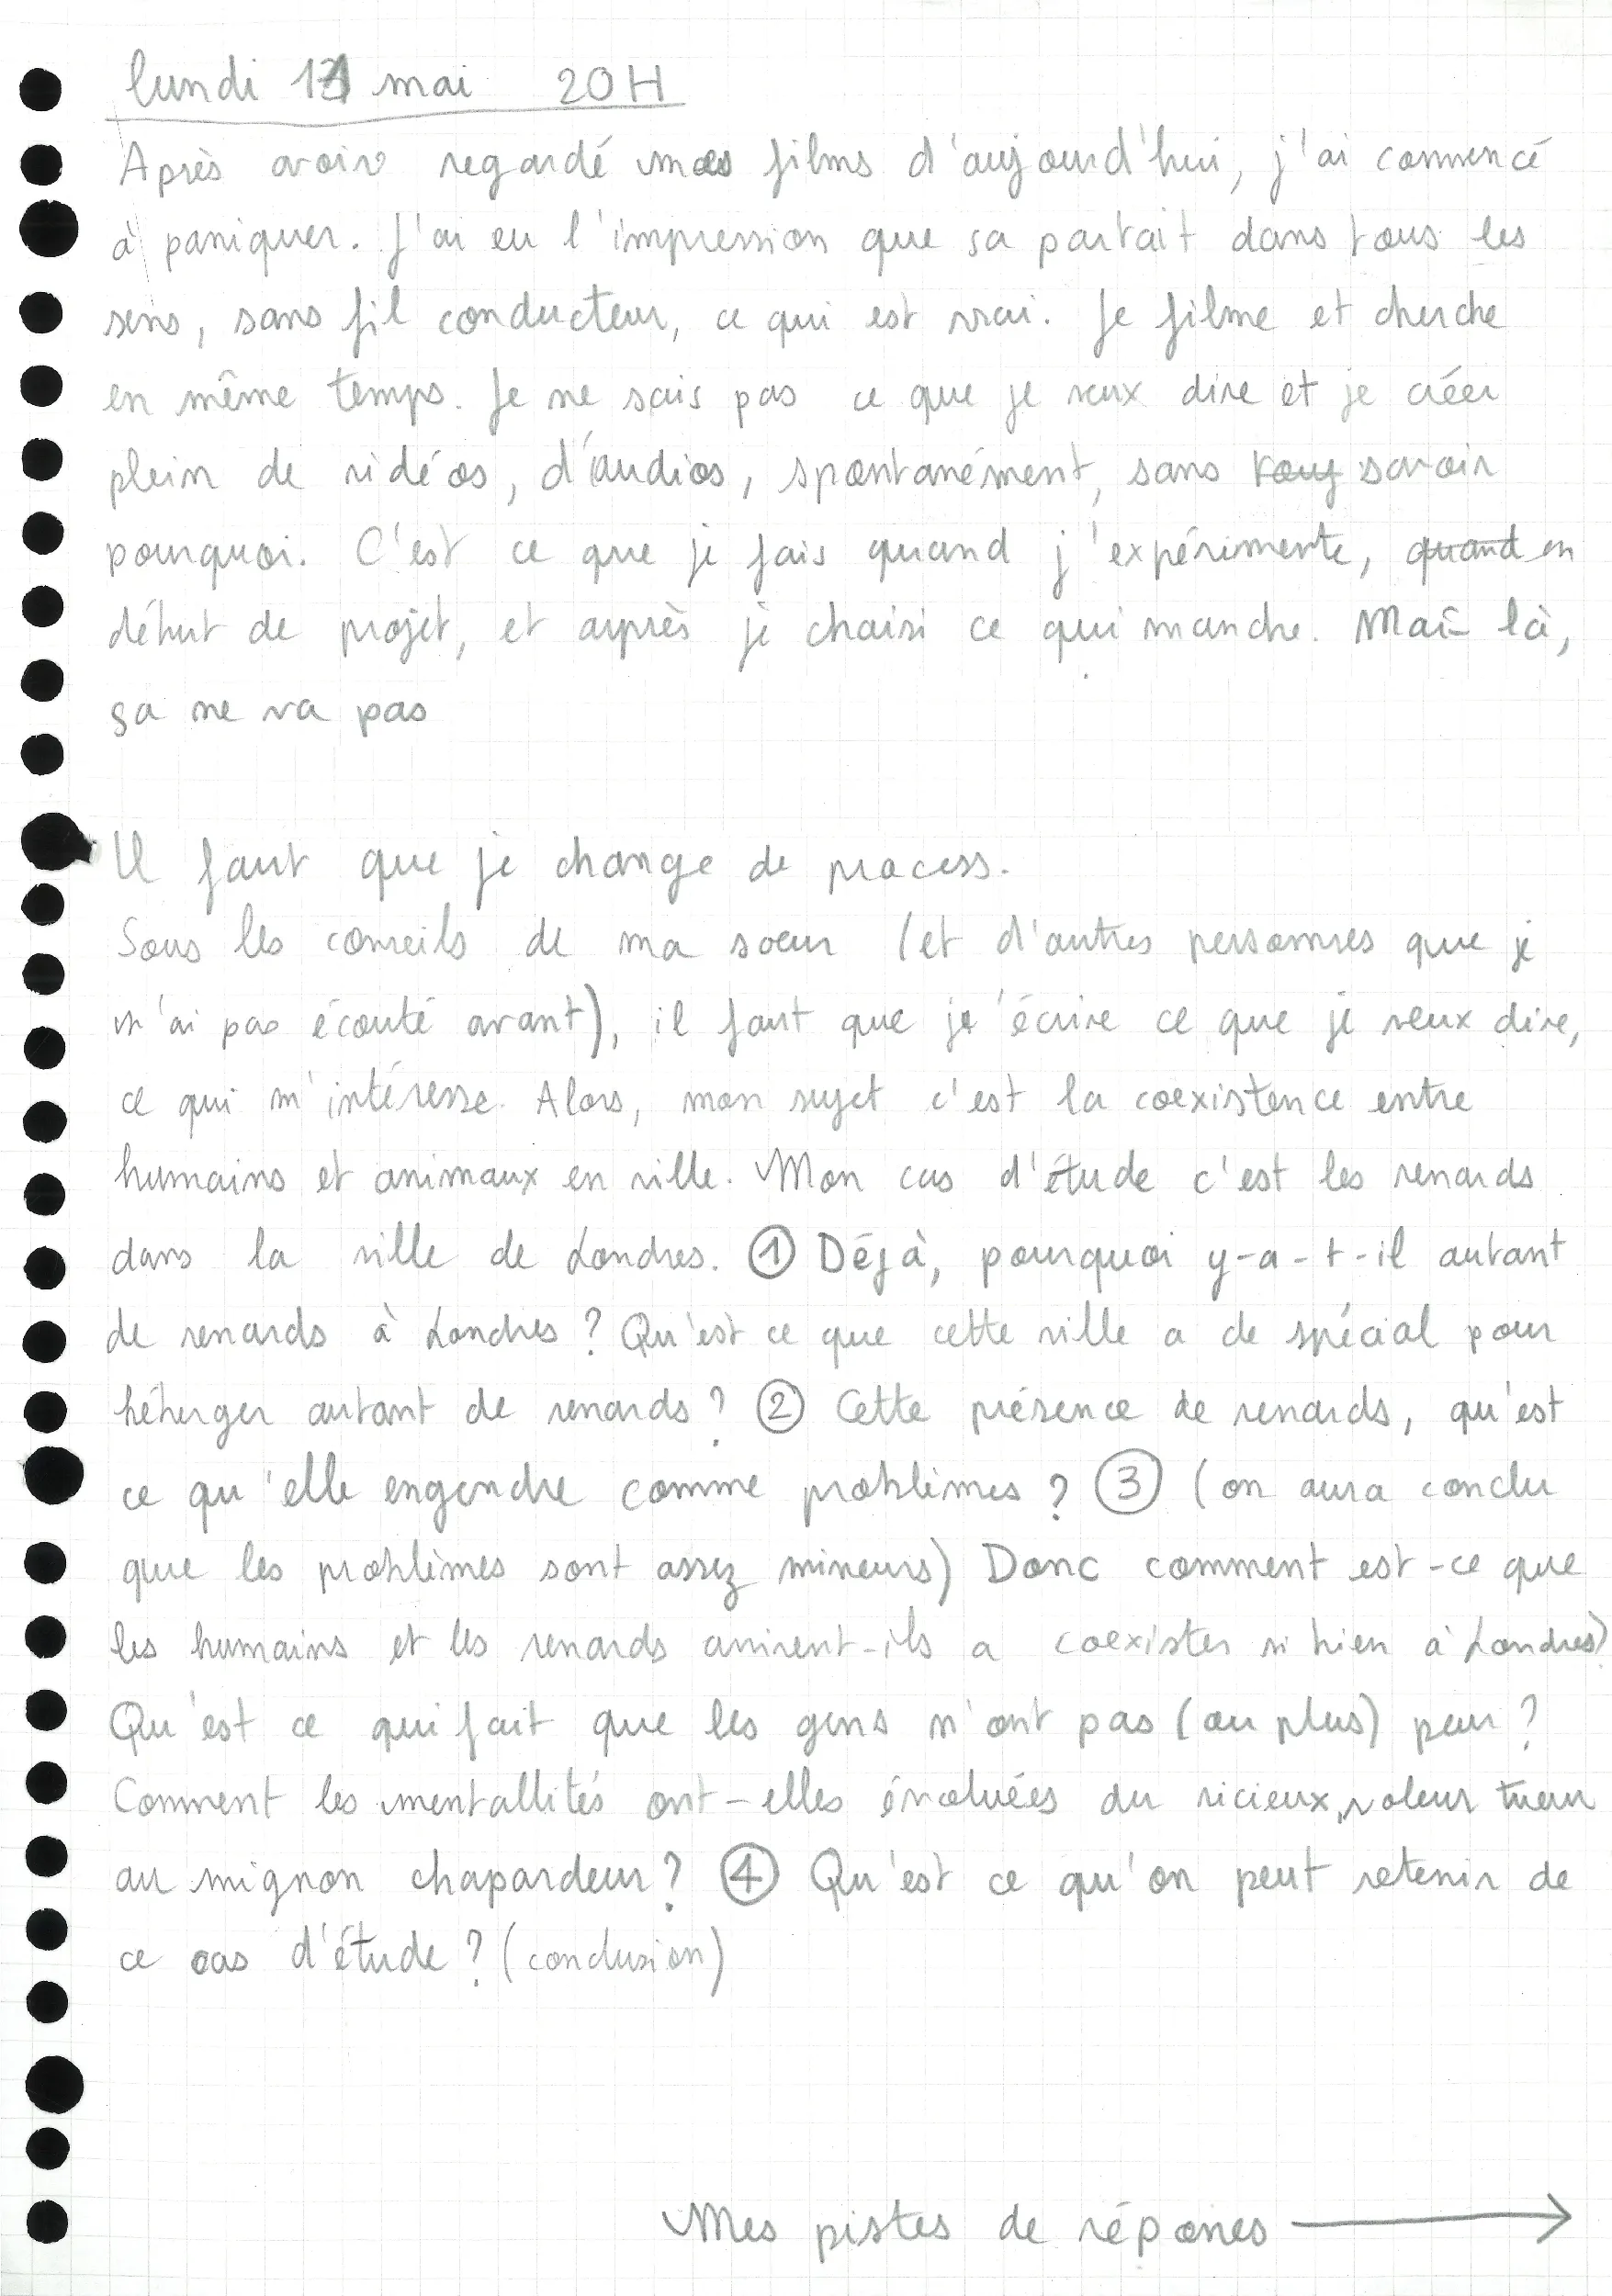 lundi 11 mai 20H
Après avoir regardé mes films d'aujourd'hui, j'ai commencé
à paniquer. J'ai eu l'impression que ça partait dans tous les
sens, sans fil conducteur, ce qui est vrai. Je filme et cherche
en même temps. Je ne sais pas ce que je veux dire et je créer
plein de vidéos, d'audios, spontanément, sans savoir
pourquoi. C'est ce que je fais quand j'expérimente, quand en
début de projet, et après je choisi ce qui manche. Mais là,
ça ne va pas
Il faut que je change de process.
Sous les conseils de ma soeur (et d'autres personnes que je
n'ai pas écouté avant), il faut que j'écrive ce que je veux dire,
ce qui m'intéresse. Alors, mon sujet c'est la coexistence entre
humains et animaux en ville. Mon cas d'étude c'est les renards
dans la ville de Londres. ① Déjà, pourquoi y-a-t-il autant
de renards à Londres ? Qu'est ce que cette ville a de spécial pour
héberger autant de renards ? ② Cette présence de renards, qu'est
ce qu'elle engendre comme problèmes ? ③ (on aura conclu
que les problèmes sont assez mineurs) Donc comment est-ce que
les humains et les renards arrivent-ils a coexister si bien à Londres ?
Qu'est ce qui fait que les gens n'ont pas (ou plus) peur ?
Comment les mentallités ont-elles évoluées du vicieux, voleur tueur
au mignon chapardeur ? ④ Qu'est ce qu'on peut retenir de
ce cas d'étude ? (conclusion)
Mes pistes de réponses →